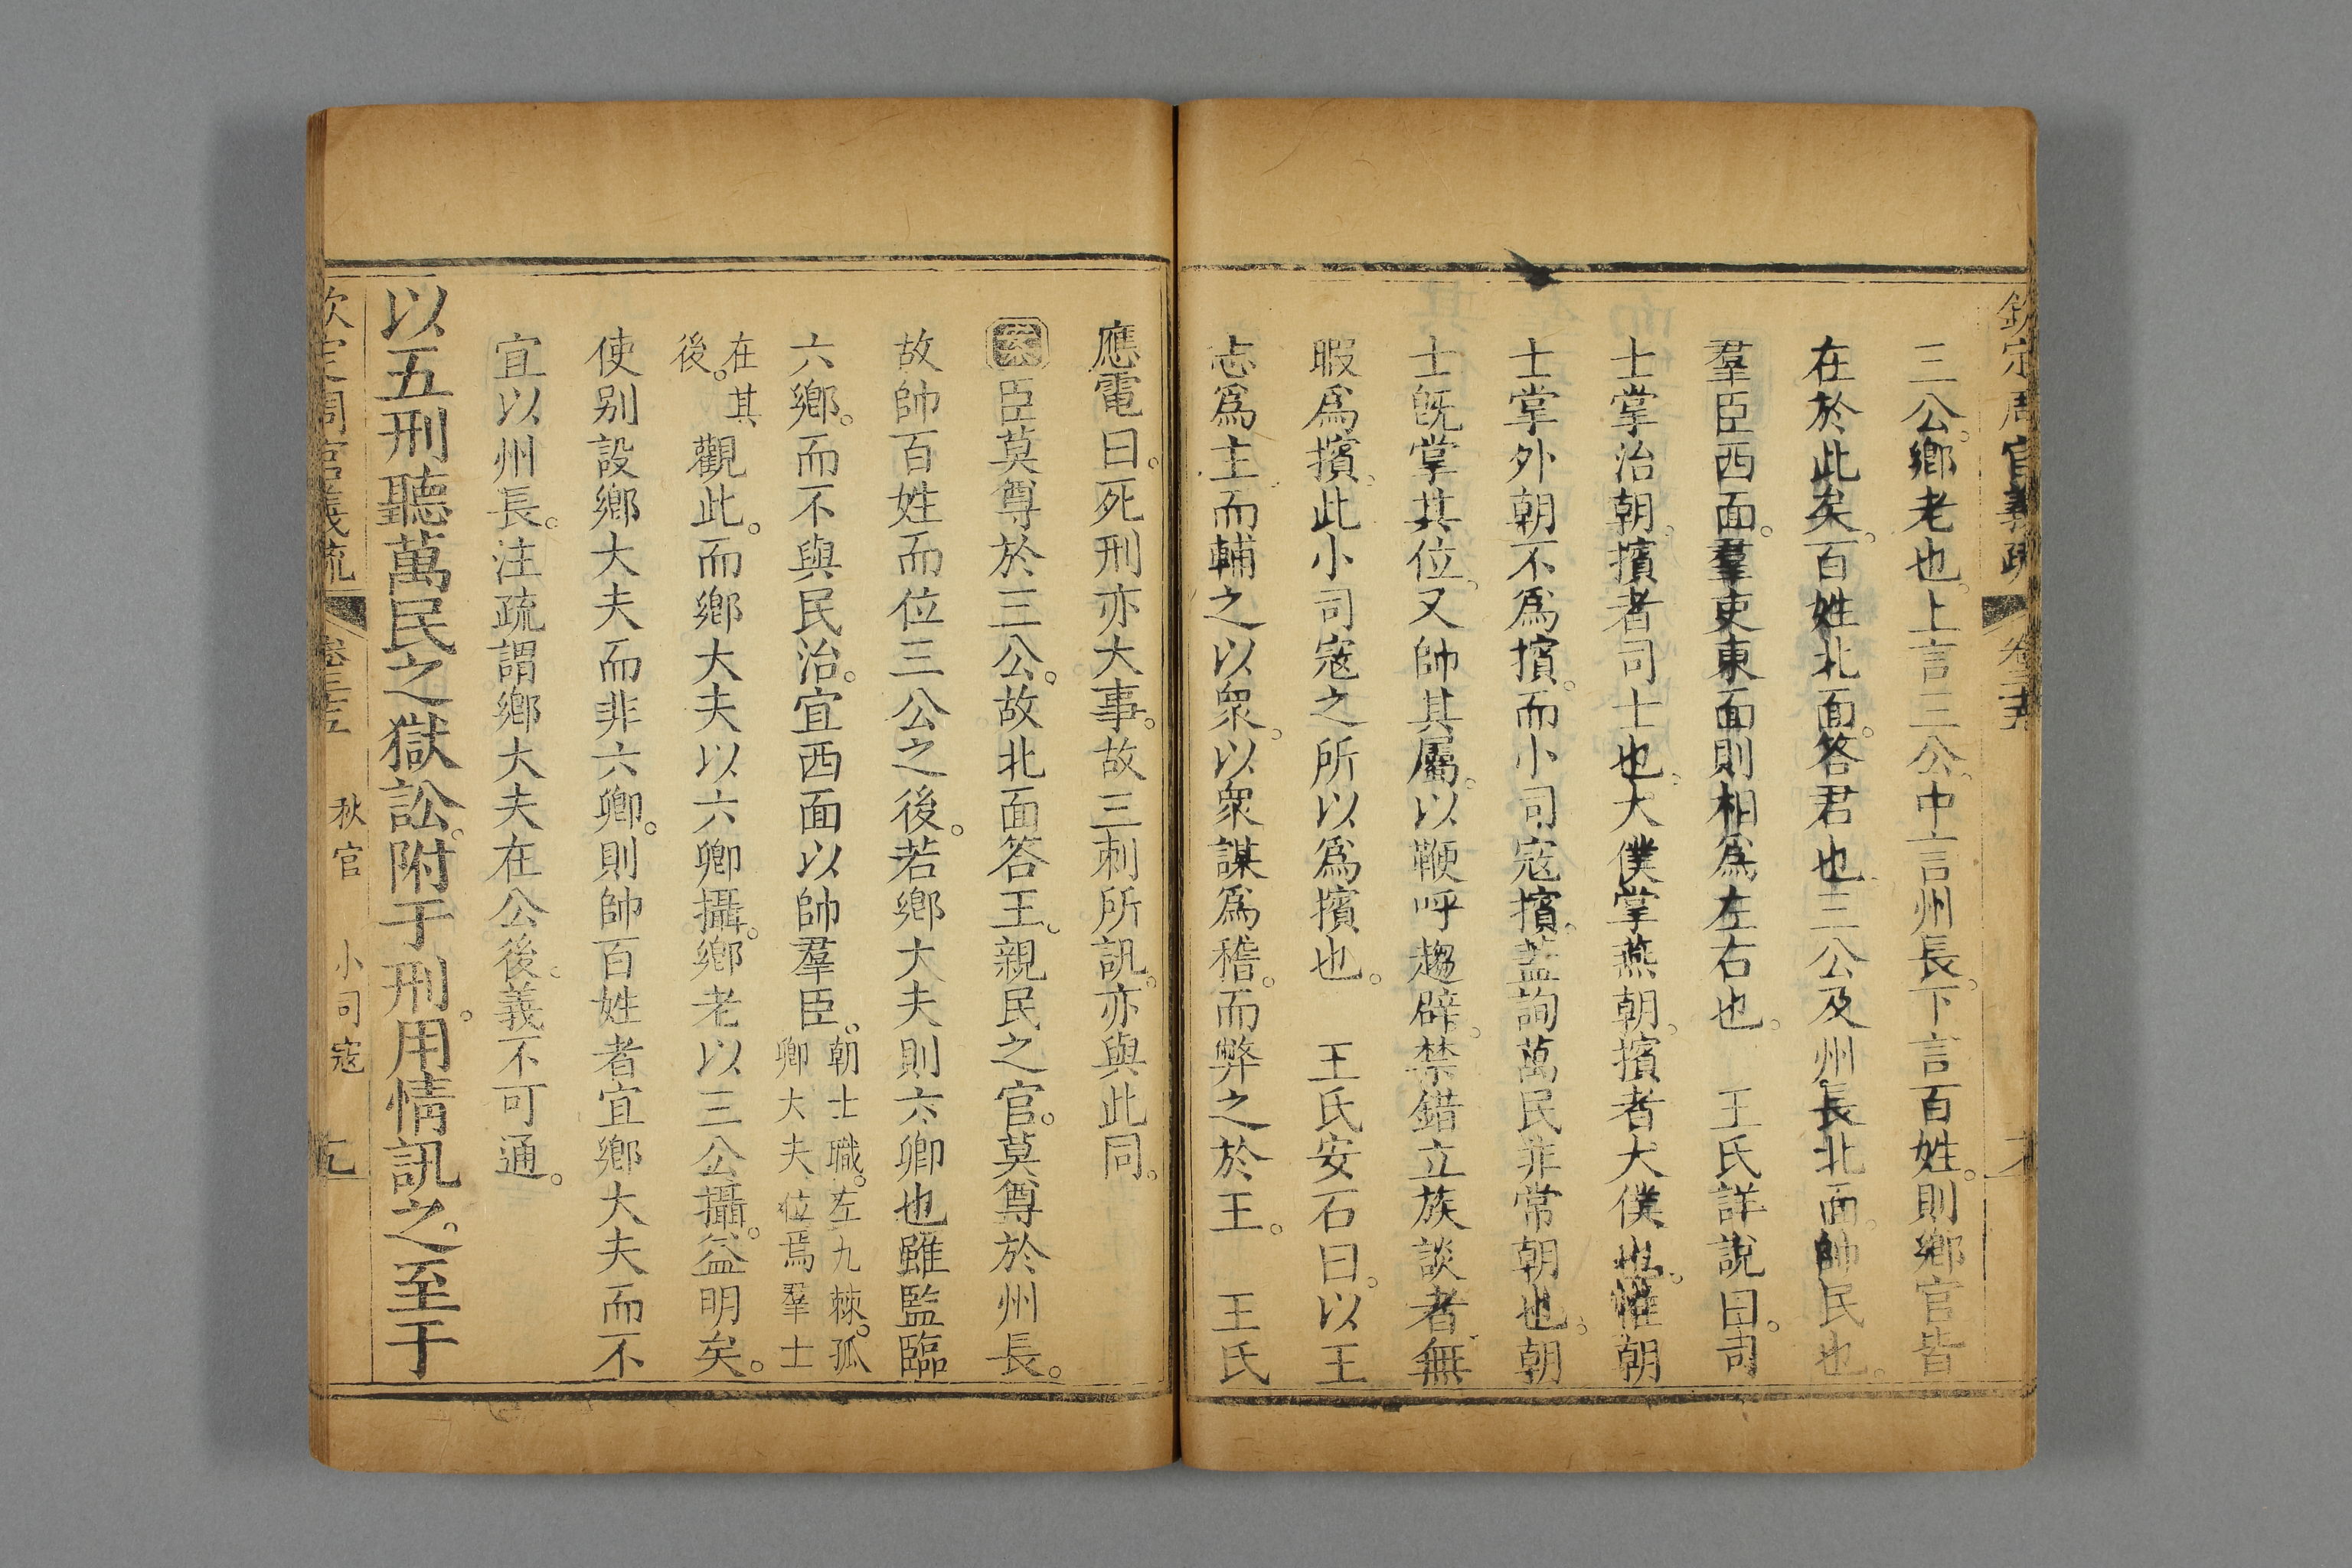 欽定周官義疏 卷三十五
三公。鄉老也。上言三公。中言州長。下言百姓。則鄉官皆
在於此矣。百姓北面。答君也。三公及州長北面。帥民也。
羣臣西面。羣吏東面則相爲左右也。 王氏詳說曰。司
士掌治朝。擯者司士也。大僕掌燕朝。擯者大僕也。惟朝
士掌外朝不爲擯。而小司寇擯。蓋詢萬民非常朝也。朝
士旣掌其位。又帥其屬。以鞭呼趨辟。禁錯立族談者無
暇爲擯。此小司寇之所以爲擯也。 王氏安石曰。以王
志爲主而輔之以衆。以衆謀爲稽。而弊之於王。 王氏
應電曰。死刑亦大事。故三刺所訊。亦與此同。
案臣莫尊於三公。故北面答王。親民之官。莫尊於州長。
故帥百姓而位三公之後。若鄉大夫則六卿也雖監臨
六鄉。而不與民治。宜西面以帥羣臣。朝士職。左九棘。孤卿大夫位焉羣士
在其後。觀此。而鄉大夫以六卿攝。鄉老以三公攝。益明矣。
使别設鄉大夫而非六卿。則帥百姓者宜鄉大夫而不
宜以州長。注疏謂鄉大夫在公後。義不可通。
以五刑聽萬民之獄訟。附于刑。用情訊之。至于
欽定周官義疏 卷三十五 秋官 小司寇